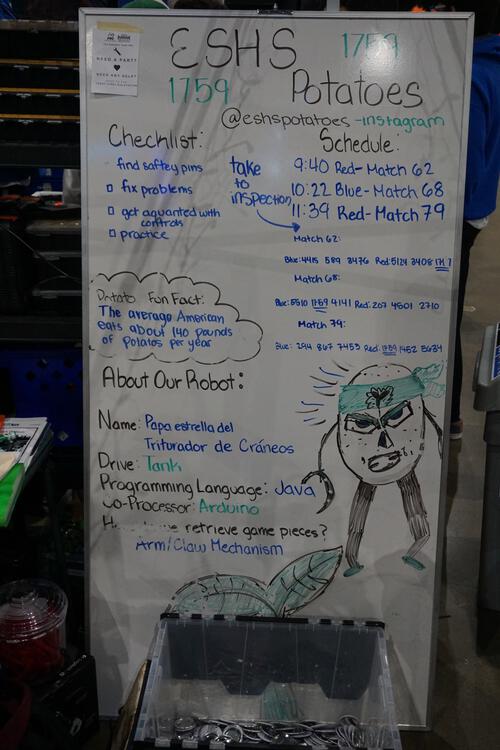 NEED A PART?
NEED ANY HELP?
ESHS 1759
1759 Potatoes
@eshspotatoes -instagram
Checklist:
find saftey pins
fix problems
get aquanted with
controls
practice
take
to
inspection
Schedule:
9:40 Red- Match 62
10:22 Blue- Match 68
11:39 Red- Match 79
Match 62:
Blue: 4415 589 3476 Red: 5124 3408
Match 68:
Blue: 5510 1759 4141 Red: 207 4501 2710
Match 79:
Blue: 294 867 7453 Red: 1759 1452 5634
Potato Fun Fact:
The average American
eats about 140 pounds
of potatos per year
About Our Robot:
Name: Papa estrella del
Triturador de Cráneos
Drive: Tank
Programming Language: Java
Co-Processor: Arduino
retrieve game pieces?
Arm/Claw Mechanism